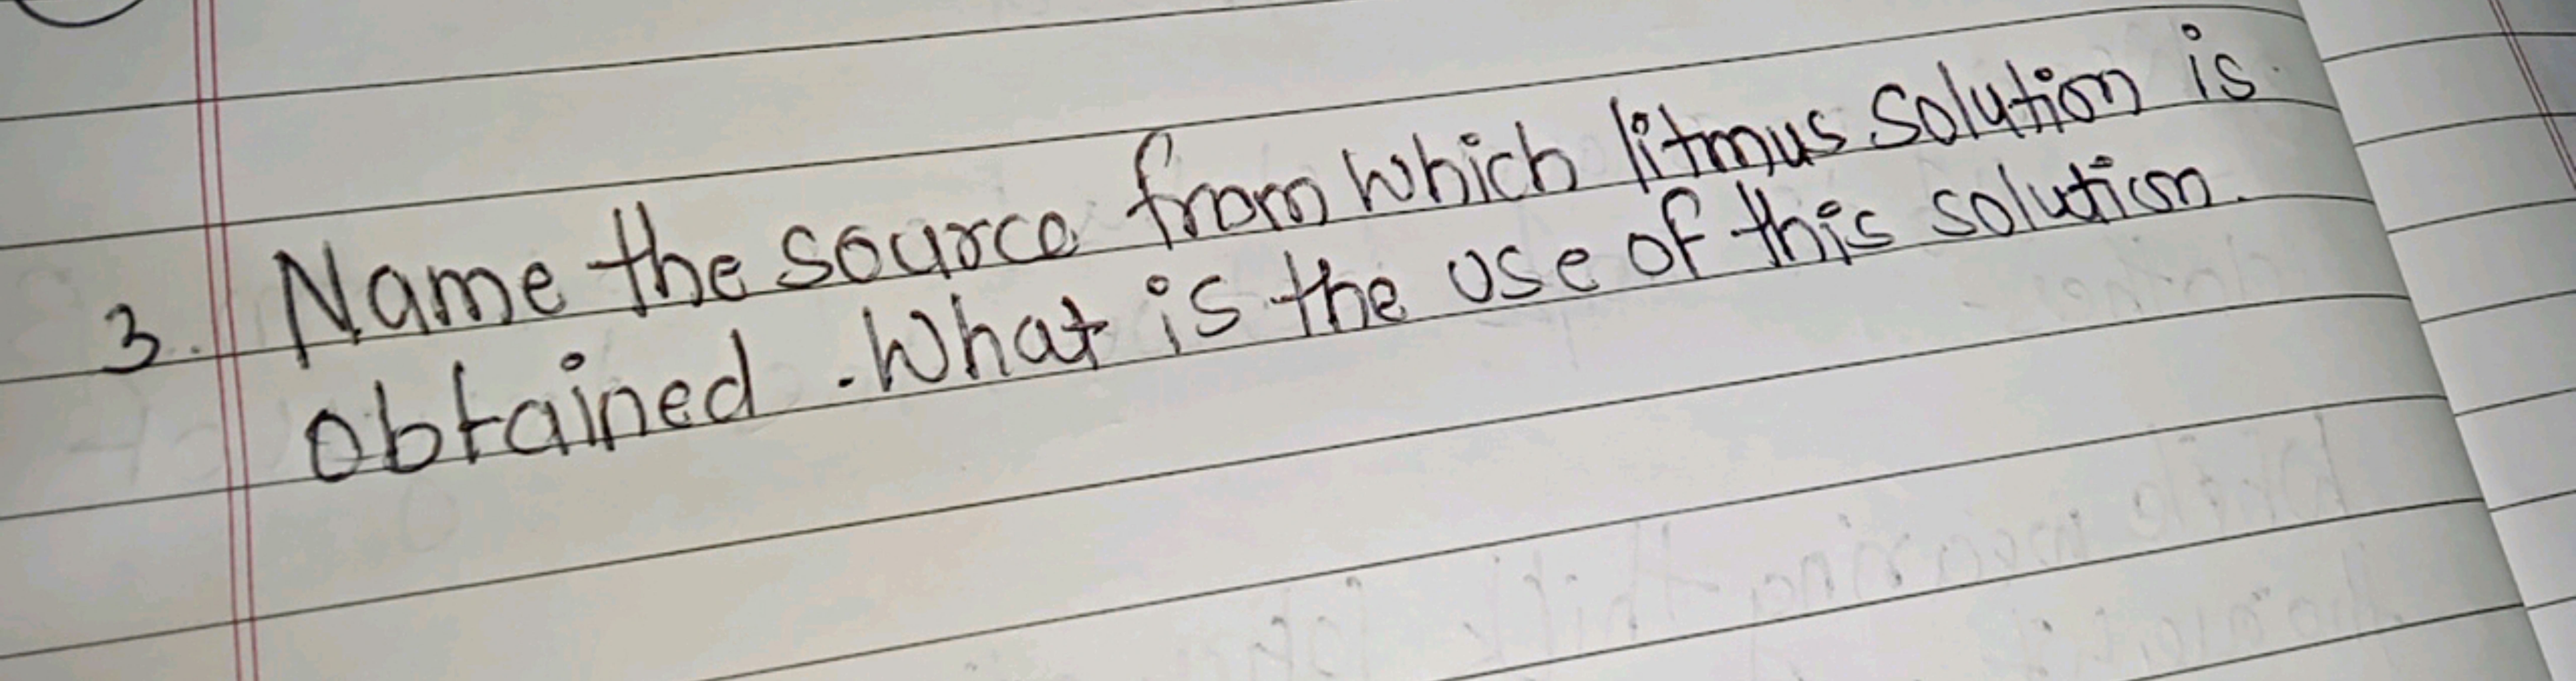 3. Name the source from which litmus solution is
obtained. What is the use of this solution.